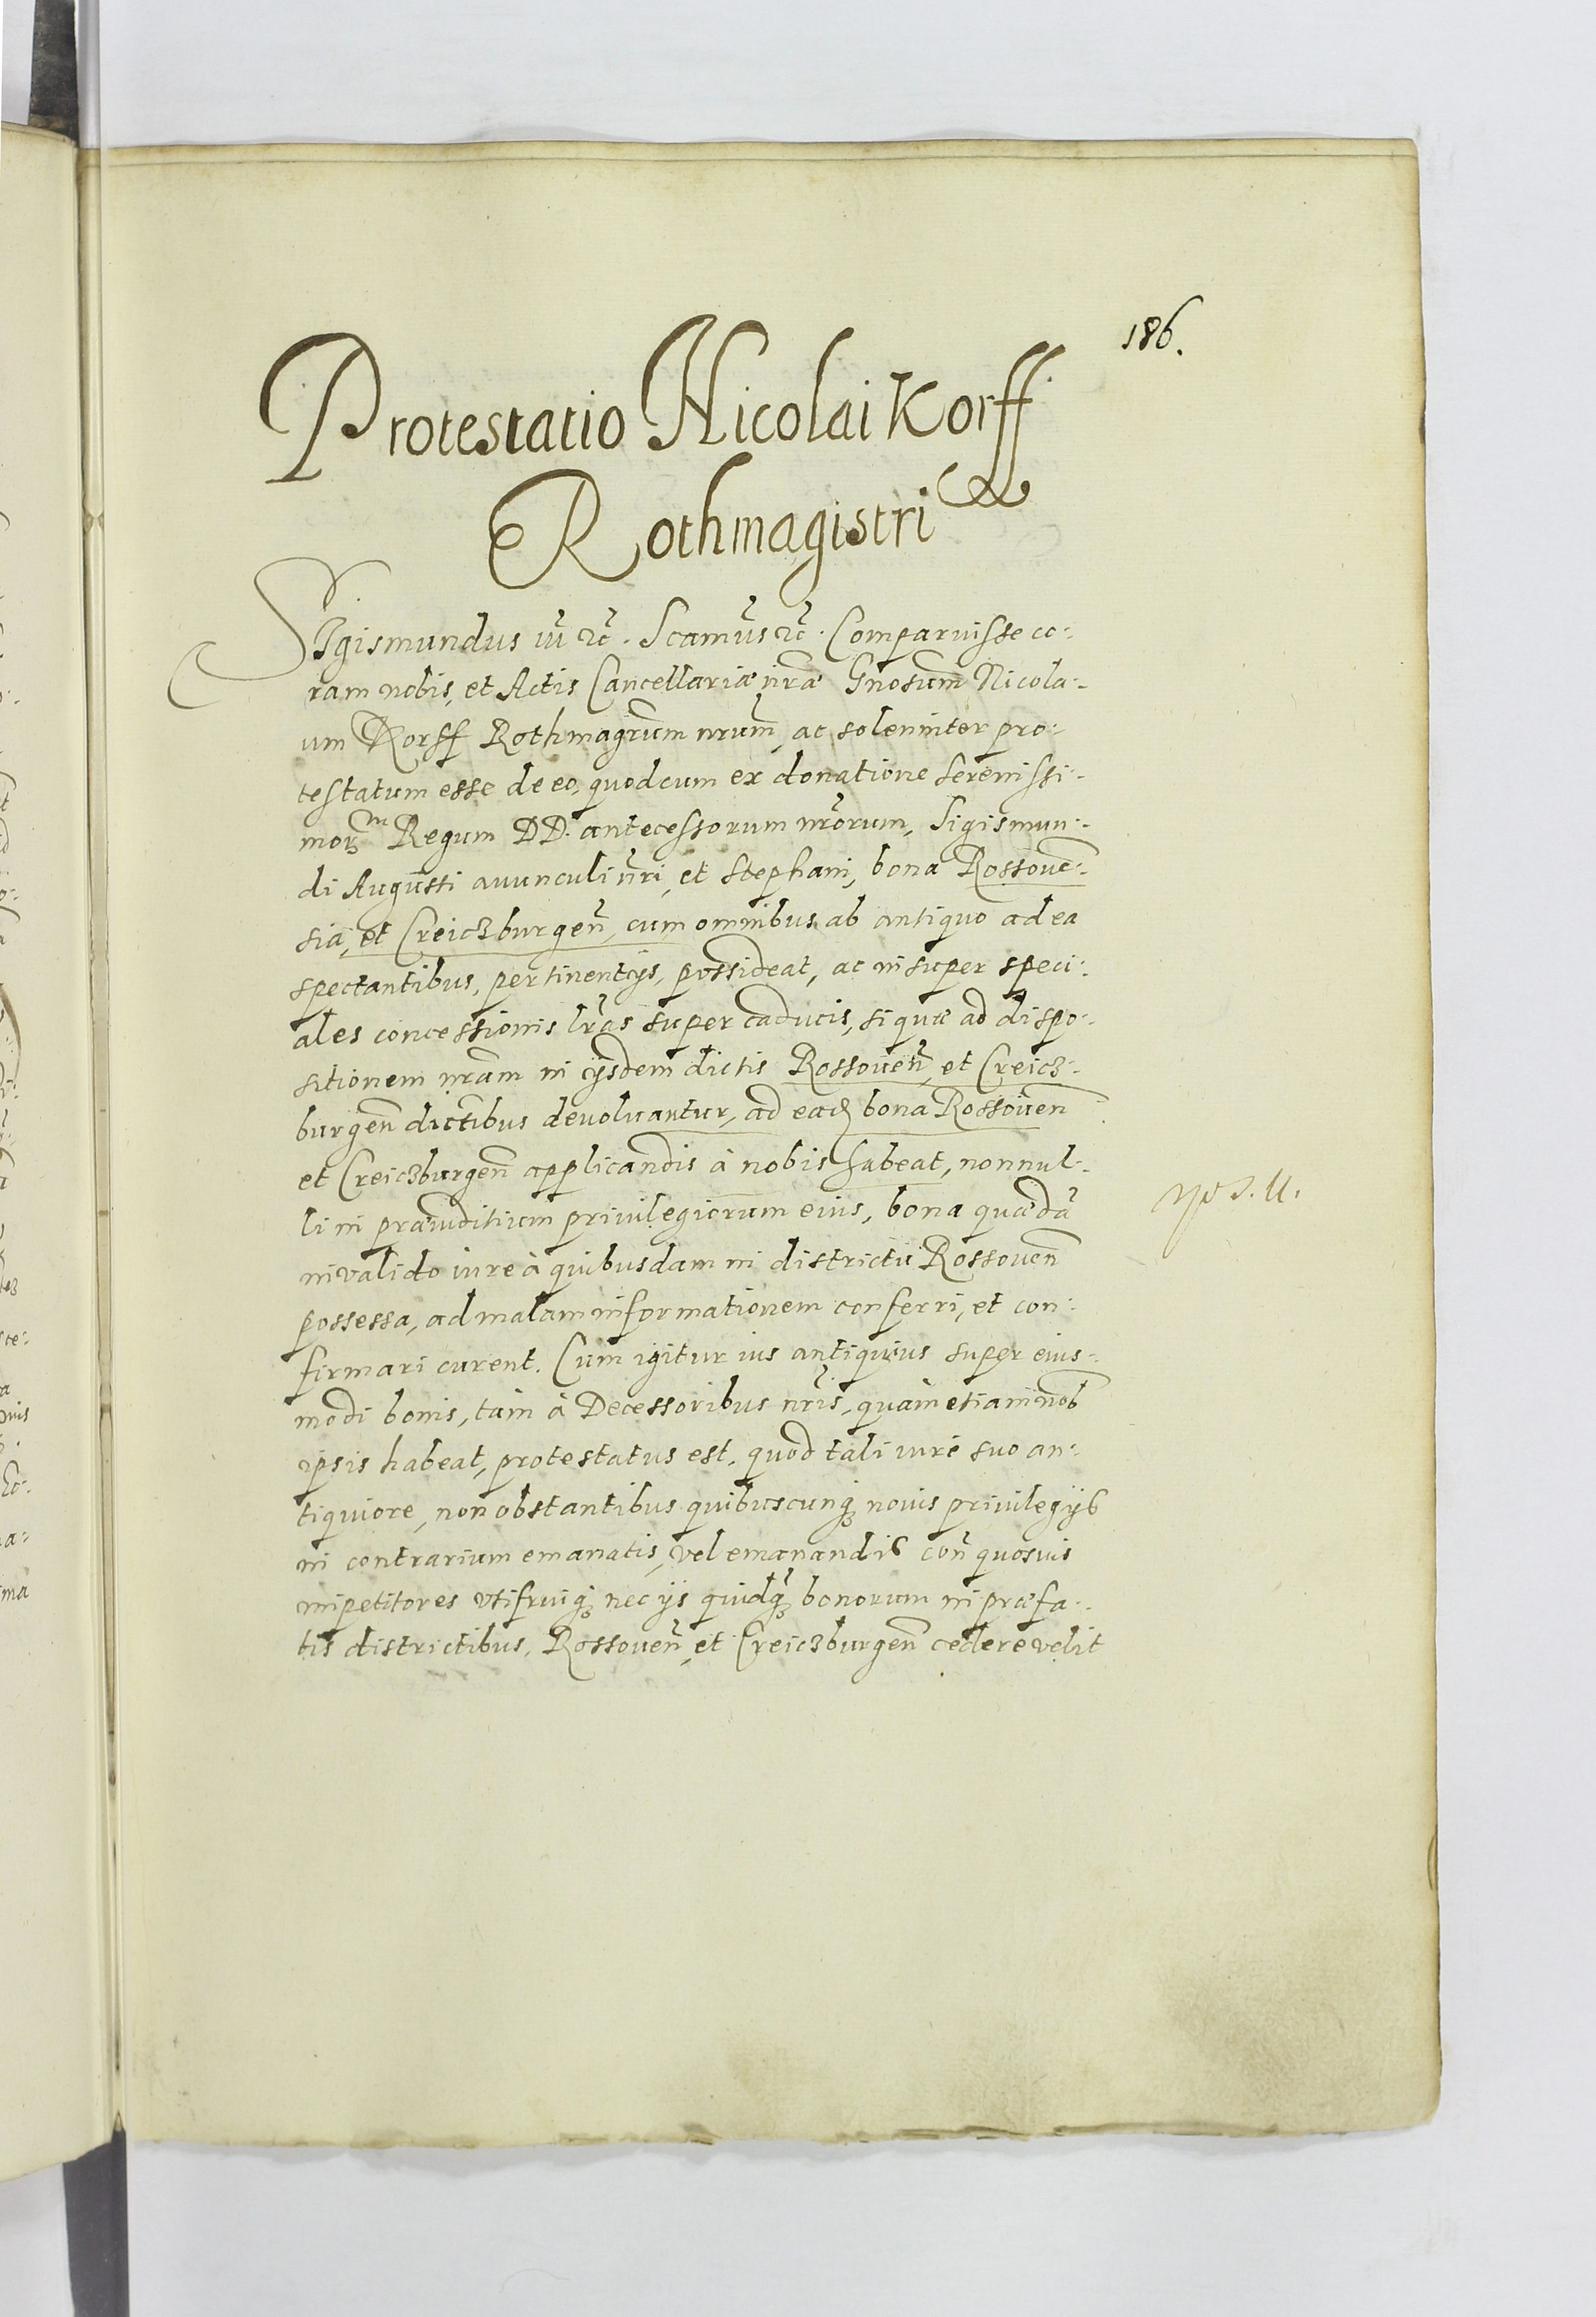 186.
Protestatio Nicolai Korff
Rothmagistri
SIgismundus iii zc. Scamus zc. Comparuisse co:
ram nobis, et Actis Cancellariæ nræ Gnosum Nicola:
um Korff Rothmagrum nrum, ac solenniter pro:
testatum esse de eo, quod cum ex donatione Serenissi:
morum Regum DD. antecessorum nrorum, Sigismun:
di Augusti auunculi nri, et Stephani, bona Rossoue:
sia, et Creiczburgen, cum omnibus ab antiquo ad ea
spectantibus, pertinentijs, possideat, ac insuper speci:
ales concessionis lras super caducis, si quæ ad dispo:
sitionem nram in ijsdem dictis Rossouen, et Creicz:
burgen dictibus deuoluantur, ad eadem bona Rossouen
et Creiczburgen applicandis à nobis habeat, nonnul:
li in præiuditium priuilegiorum eius, bona quædã
invalido iure à quibusdam in districtu Rossouen
possessa, ad malam informationem conferri, et con:
firmari curent. Cum igitur ius antiquius super eius:
modi bonis, tàm à Decessoribus nris, quàm etiam nob
ipsis habeat, protestatus est, quod tali iure suo an:
tiquiore, non obstantibus quibuscunq nouis priuilegijs
in contrarium emanatis, vel emanandis con quosuis
impetitores vti frui q nec ijs quidq bonorum in præfa:
tis districtibus, Rossouen, et Creiczburgen cedere velit